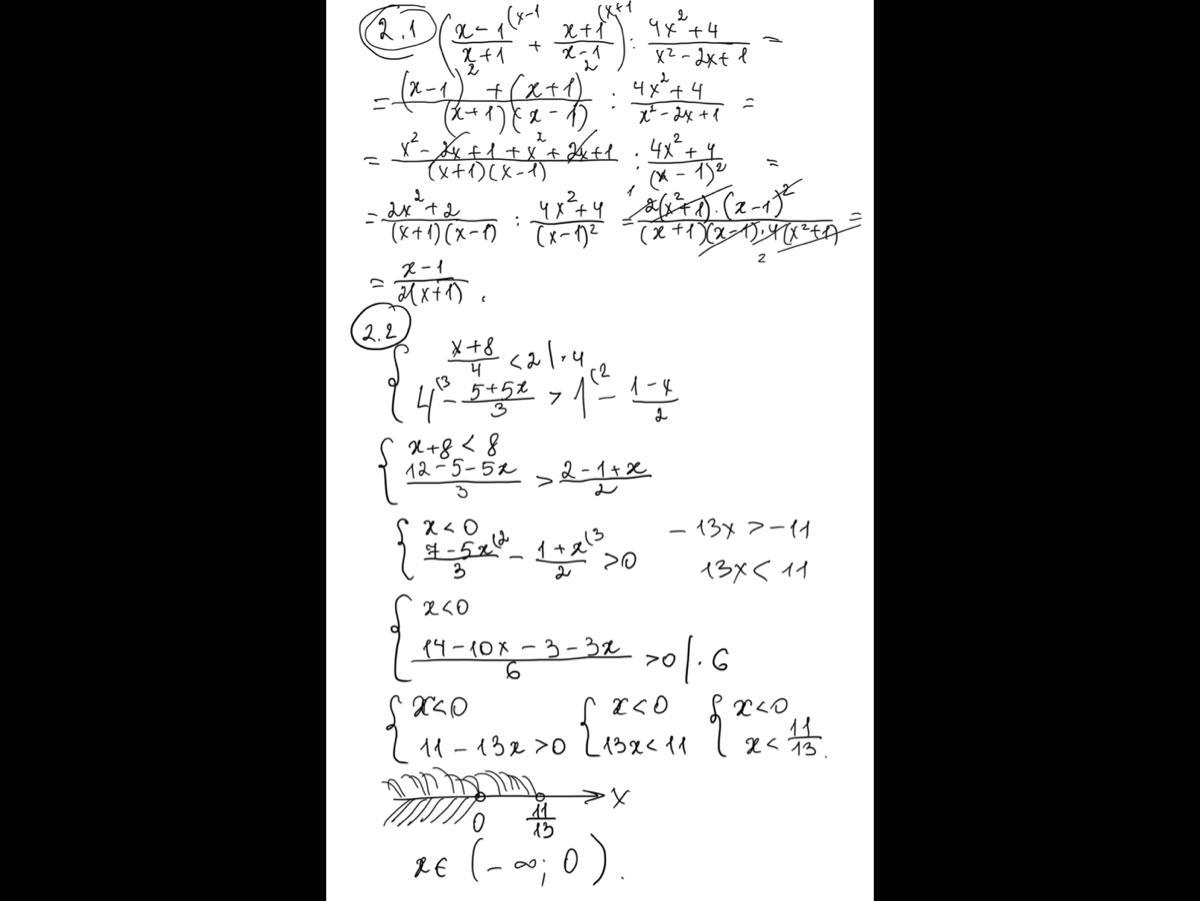 2.1 ( (x-1)/(x+1) ^(x-1 + (x+1)/(x-1) ^(x+1 ) : (4x²+4)/(x²-2x+1) =
= ((x-1)²+(x+1)²)/((x+1)(x-1)) : (4x²+4)/(x²-2x+1) =
= (x²-2x+1+x²+2x+1)/((x+1)(x-1)) : (4x²+4)/(x-1)² =
= (2x²+2)/((x+1)(x-1)) : (4x²+4)/(x-1)² = (¹2(x²+1)·(x-1)²)/((x+1)(x-1)·4₂(x²+1)) =
= (x-1)/(2(x+1)).
2.2
{ (x+8)/4 < 2 |·4
4^(3 - (5+5x)/3 > 1^(2 - (1-x)/2
{ x+8 < 8
(12-5-5x)/3 > (2-1+x)/2
{ x<0
(7-5x)/3 ^(2 - (1+x)/2 ^(3 >0
-13x > -11
13x < 11
{ x<0
(14-10x-3-3x)/6 >0 |·6
{ x<0 { x<0 { x<0
11-13x>0 13x<11 x< 11/13.
x
0 11/13
x∈(-∞; 0).